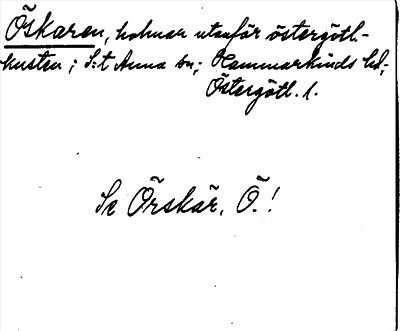 Öskaren, holmar utanför östergötl.-
kusten; S:t Anna sn; Hammarkinds hd,
Östergötl. l.
Se Örskär, Ö.!